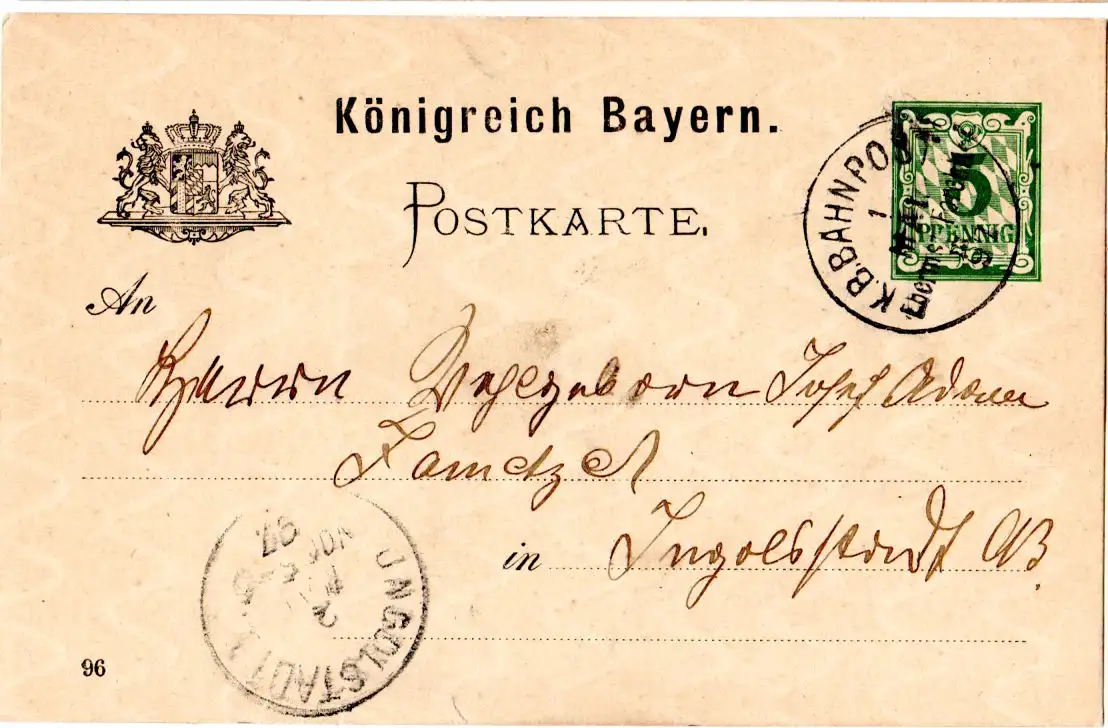 Königreich Bayern.
POSTKARTE.
5
PFENNIG
K.B.BAHNPOST
1
An
Herrn Wohlgeborn Josef Adam
in Ingolstadt
JNGOLSTADT
2
NOV
97
96